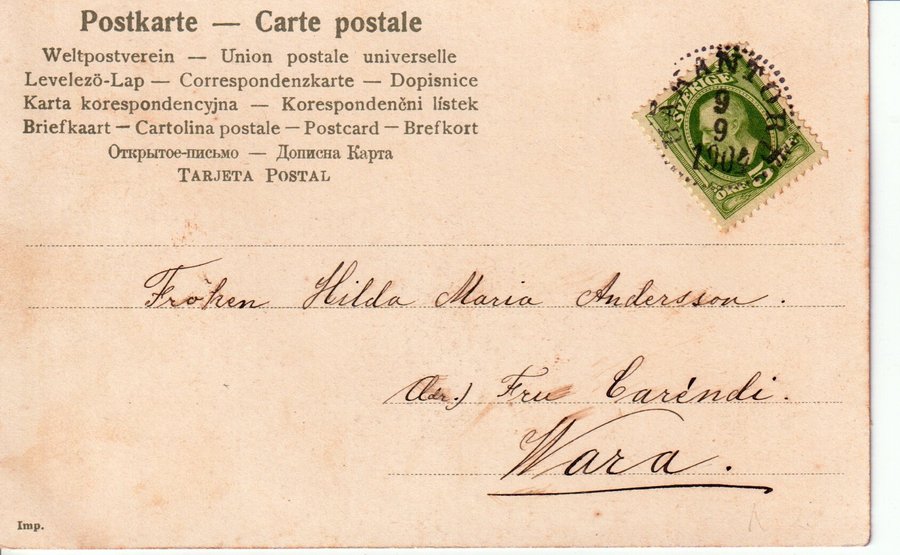 Postkarte — Carte postale
Weltpostverein — Union postale universelle
Levelezö-Lap — Correspondenzkarte — Dopisnice
Karta korespondencyjna — Korespondenčni lístek
Briefkaart — Cartolina postale — Postcard — Brefkort
Открытое-письмо — Дописна Карта
TARJETA POSTAL
SVERIGE
9
9
1904
5
ÖRE
Fröken Hilda Maria Andersson.
Adr.) Fru Caréndi.
Wara.
Imp.